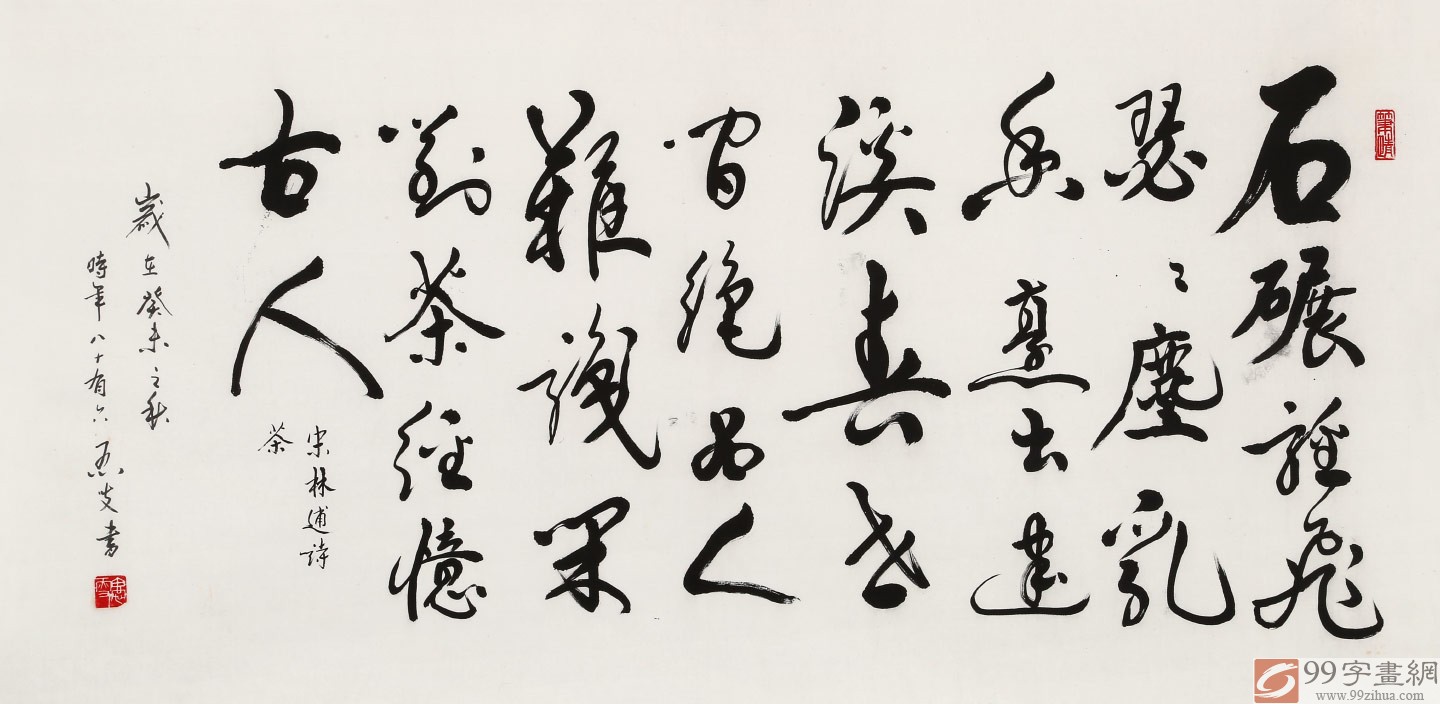 石碾輕飛
瑟々塵乳
香烹出建
溪春世
間絕品人
難識閑
對茶經憶
古人
宋林逋詩
茶
歲在癸未之秋
時年八十有六 書
99字畫網
www.99zihua.com